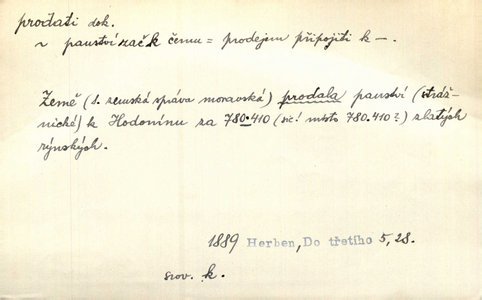 prodati dok.
~ panství zač k čemu = prodejem připojiti k —.
Země (t. zemská správa moravská) prodala panství (stráž-
nické) k Hodonínu za 780.410 (sic! místo 780.410?) zlatých
rýnských.
1889 Herben, Do třetího 5, 28.
srov. k.